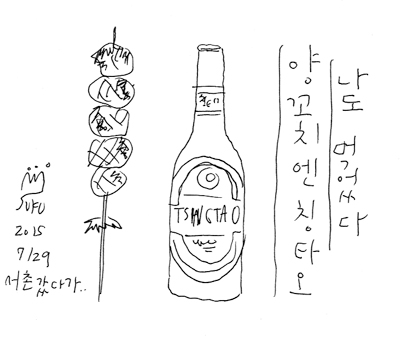 나도 먹었다
양꼬치엔 칭타오
TSINGTAO
SUFU
2015
7/29
서촌갔다가..